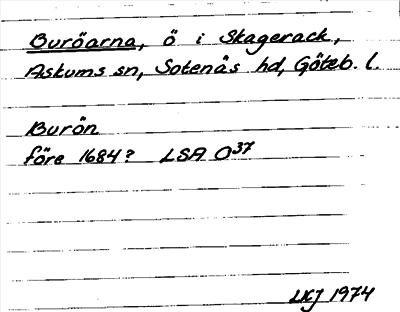 Buröarna, ö i Skagerack,
Askums sn, Sotenäs hd, Göteb. l.
Burön
före 1684? LSA O37
LKJ 1974